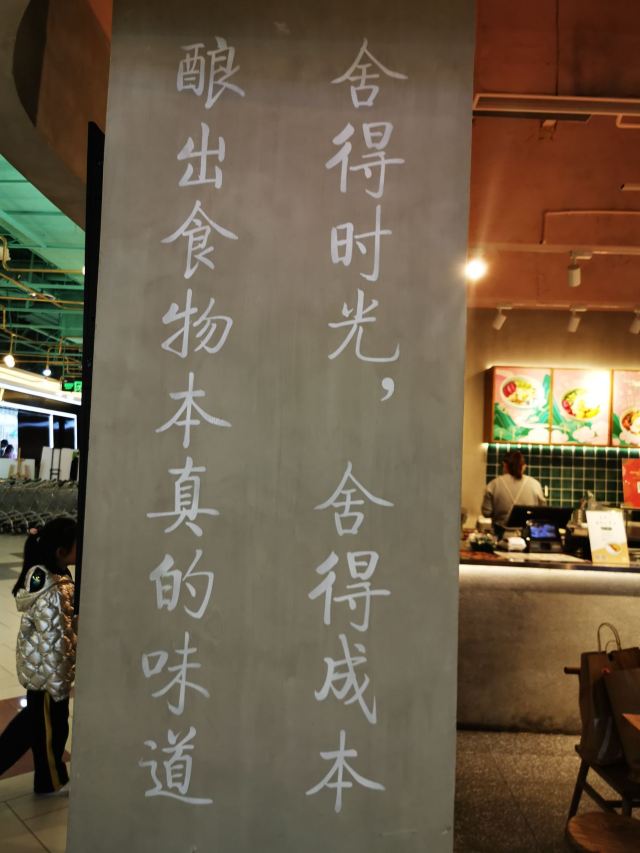 舍得时光，舍得成本
酿出食物本真的味道